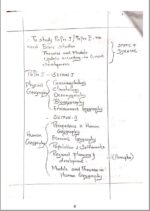 To study Paper I / Paper II - we
need Basic studies
Theories and Models
Update including the current
developments
STATIC +
DYNAMIC
Paper I - SECTION I
Physical
Geography
Geomorphology
Climatology
Oceanography
Biogeography
Environmental Geography
SECTION-II
Human
Geography
Perspectives in Human
Geography
Economic Geography
Population & Settlements
Regional planning &
development
Models and theories in
Human Geography